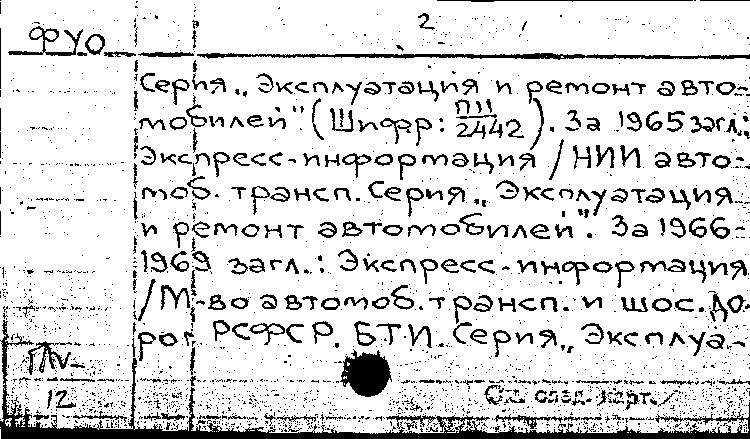 2
ФУО
Серия „Эксплуатация и ремонт авто-
мобилей" (Шифр: П11/2442). За 1965 загл.:
Экспресс-информация / НИИ авто-
моб. трансп. Серия „Эксплуатация
и ремонт автомобилей". За 1966-
1969 загл.: Экспресс-информация
/ М-во автомоб. трансп. и шос. до-
рог РСФСР. БТИ. Серия „Эксплуа-
12
См. след. карт.